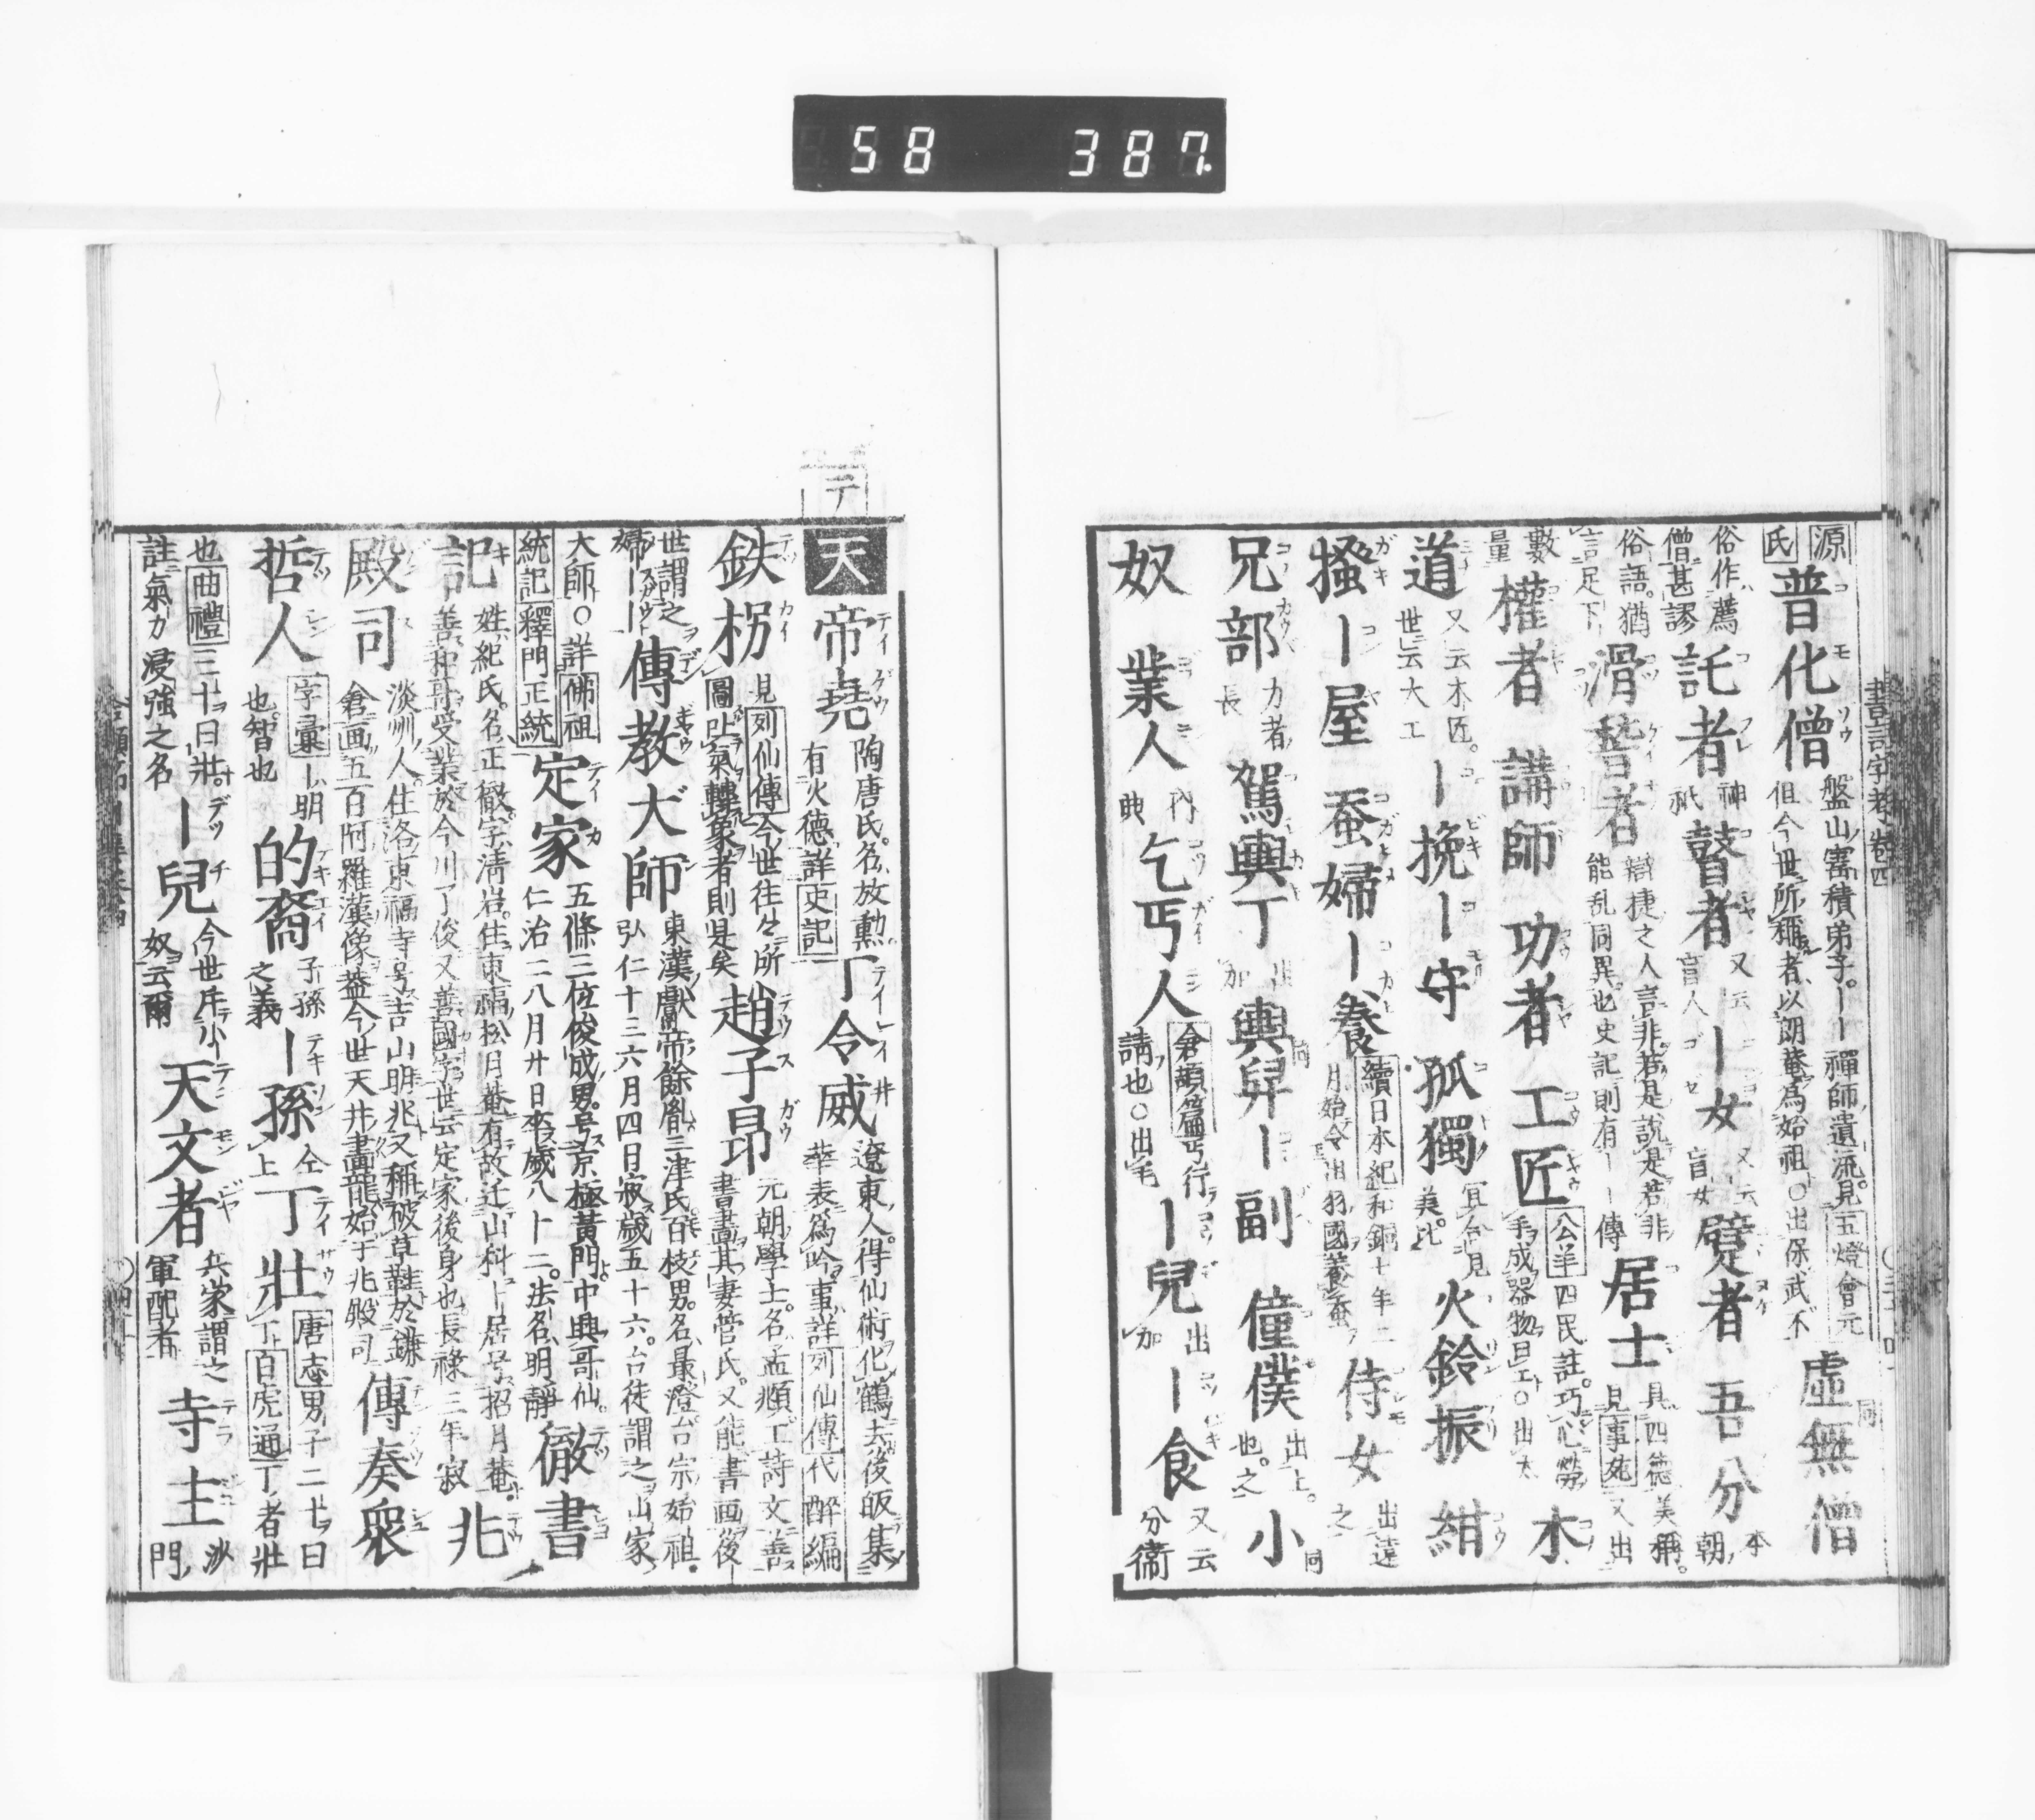 58 387
書言字考巻四
源氏 普化僧 盤山寳積弟子。ーー禪師遺流。見五燈會元 但今世所稱者以朗菴為始祖○出保武不 虚無僧 同
俗作薦僧甚謬 託者 神祇 瞽者 又云盲人 ー女 又云盲女 躄者 吾分 本朝
俗語。猶言足下 滑稽者 辯捷之人言非若是說是若非能乱同異也史記則有ーー傳 居士 具四德美稱。見事苑又出
數量 權者 講師 功者 工匠 公羊四民註。巧心勞手成器物曰工○出太 木
道 又云木匠。世云大工 ー挽 ー守 孤獨 火鈴振 紺
搔 ー屋 蚕婦 ー養 續日本紀和銅十年二月始令出羽國養蚕 侍女 出遠之
兄部 力者長 駕輿丁 出加 輿舁 同 ー副 僮僕 出上。也。之 小 同
奴 業人 内典 乞丐人 倉頡篇丐行請也○出毛 ー兒 出加 ー食 又云分衞
テ
天 帝堯 陶唐氏。名放勲。有火德詳史記 丁令威 遼東人。得仙術化鶴去後皈集華表為吟事詳列仙傳代醉編
鉄拐 見列仙傳今世往々所圖吐氣轉象者則是矣 趙子昂 元朝學士。名孟頫工詩文善書畫其妻管氏。又能書画後
世謂之婦ーー 傳教大師 東漢獻帝餘胤三津氏百枝男。名最澄台宗始祖。弘仁十三六月四日寂歳五十六。台徒謂之山家
大師○詳佛祖統記釋門正統 定家 五條三位俊成男。号京極黄門。中興哥仙。仁治二八月廿日卒歳八十二。法名明靜 徹書
記 姓紀氏。名正徹字清岩。住東福松月菴有故迁山科ト居号招月菴。善和哥受業於今川了俊又善國字世云定家後身也長禄三年寂 兆
殿司 淡州人住洛東福寺号吉山明兆又稱破草鞋於鎌倉画五百阿羅漢像蓋今世天井畫龍始于兆殿司 傳奏衆
哲人 字彙ー明也。智也 的裔 子孫之義 ー孫 仝上 丁壯 唐志男子二十曰丁白虎通丁者壯
也曲禮三十曰壯。註氣力浸強之名 ー兒 今世斥小奴云爾 天文者 兵家謂之軍配者 寺主 沙門